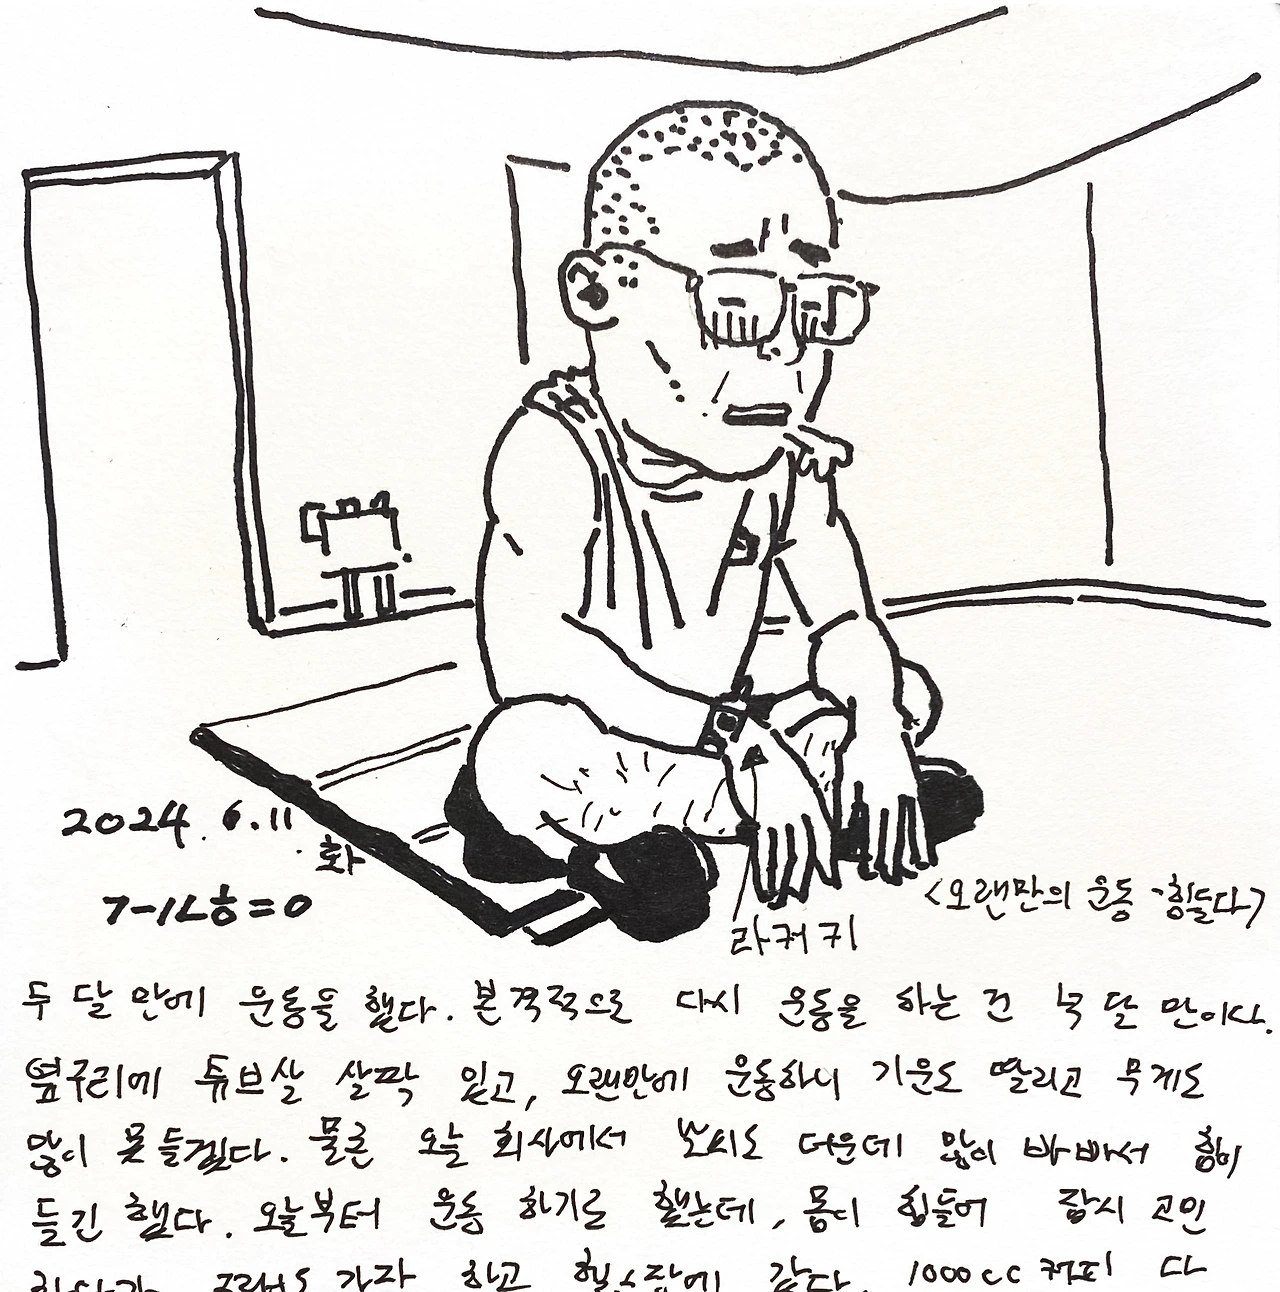 2024. 6.11
화
7-1L송=0
라커키
<오랜만의 운동-힘들다>
두 달 만에 운동을 했다. 본격적으로 다시 운동을 하는 건 넉 달 만이다.
옆구리에 튜브살 살짝 있고, 오랜만에 운동하니 기운도 딸리고 무게도
많이 못 들겠다. 물론 오늘 회사에서 날씨도 더운데 많이 바빠서 힘이
들긴 했다. 오늘부터 운동 하기로 했는데, 몸이 힘들어 잠시 고민
그래도 가자 하고 헬스장에 갔다. 1000cc 커피 다